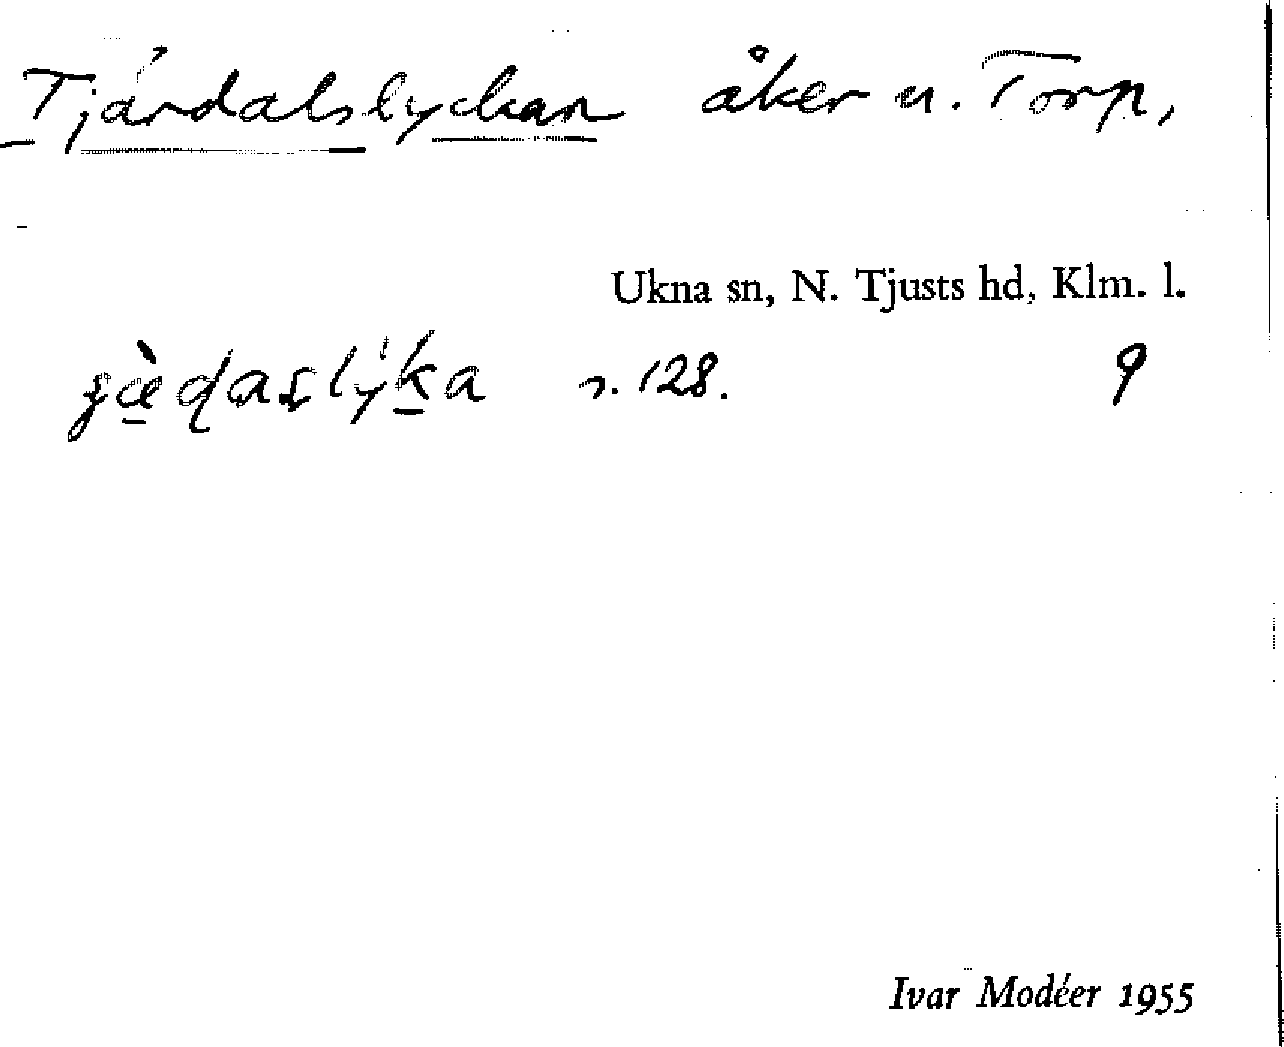 Tjärdalslyckan åker u. Torp,
Ukna sn, N. Tjusts hd, Klm. l.
n. 128. 9
Ivar Modéer 1955